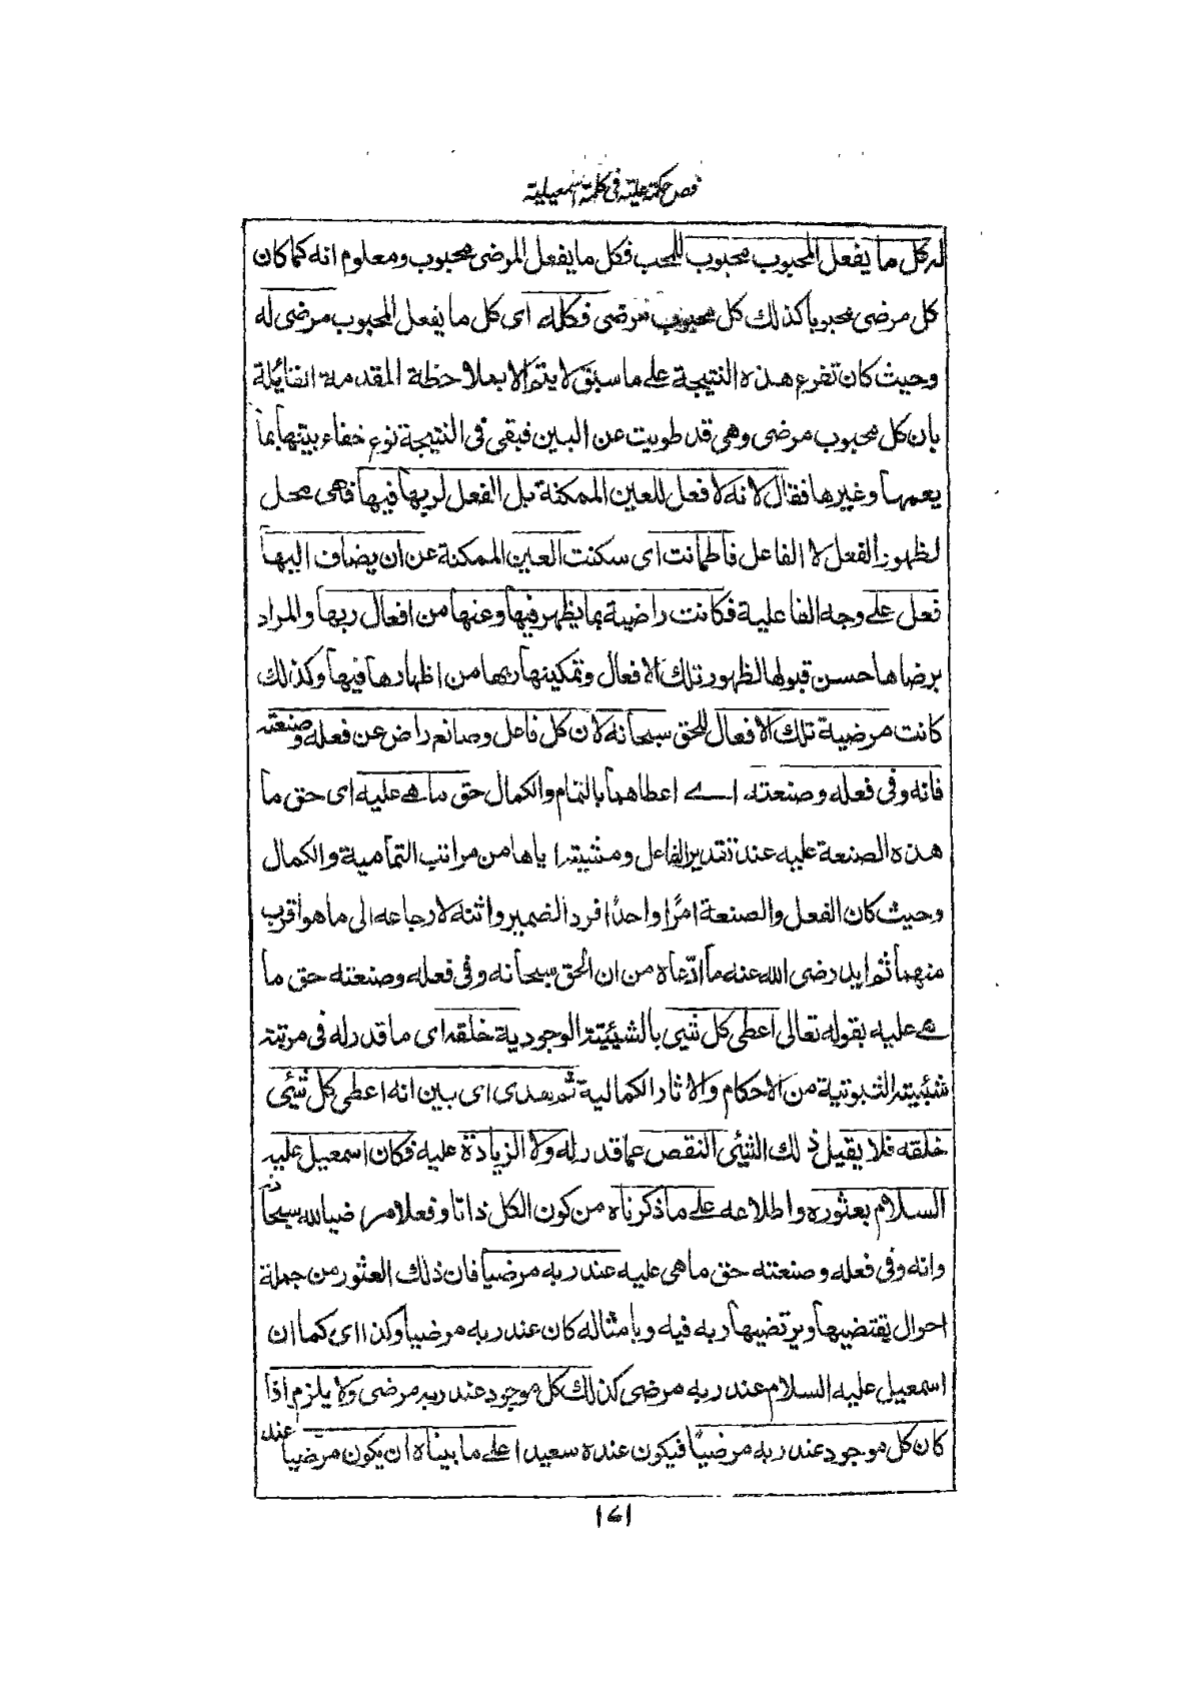 فص حكمة علية فى كلمة اسمعيلية
له كل ما يفعل المحبوب محبوب للمحب فكل ما يفعل المرضى محبوب ومعلوم انه كما كان
كل مرضى محبوبا كذلك كل محبوب مرضى فكله اى كل ما يفعل المحبوب مرضى له
وحيث كان تفرع هذه النتيجة على ما سبق لا يتم الا بملاحظة المقدمة القائلة
بان كل محبوب مرضى وهى قد طويت عن البين فبقى فى النتيجة نوع خفاء بينها بما
يعمها وغيرها فقال لانه لا فعل للعين الممكنة بل الفعل لربها فيها فهى محل
لظهور الفعل لا الفاعل فاطمانت اى سكنت العين الممكنة عن ان يضاف اليها
فعل على وجه الفاعلية فكانت راضية بما يظهر فيها وعنها من افعال ربها والمراد
برضاها حسن قبولها لظهور تلك الافعال وتمكينها ربها من اظهارها فيها وكذلك
كانت مرضية تلك الافعال للحق سبحانه لان كل فاعل وصانع راض عن فعله وصنعته
فانه وفى فعله وصنعته اے اعطاهما بالتمام والكمال حق ما هے عليه اى حق ما
هذه الصنعة عليه عند تقدير الفاعل ومشيته اياها من مراتب التمامية والكمال
وحيث كان الفعل والصنعة امرًا واحدًا افرد الضمير وانثه لارجاعه الى ما هو اقرب
منهما ثم ايد رضى الله عنه ما ادّعاه من ان الحق سبحانه وفى فعله وصنعته حق ما
هے عليه بقوله تعالى اعطى كل شئ بالشيئية الوجودية خلقه اى ما قدر له فى مرتبة
شيئيته الثبوتية من الاحكام والاثار الكمالية ثم هدى اى بين انه اعطى كل شئ
خلقه فلا يقبل ذلك الشئ النقص عما قدر له ولا الزيادة عليه فكان اسمعيل عليه
السلام بعثوره واطلاعه على ما ذكرناه من كون الكل ذاتا وفعلا مرضيا لله سبحانه
وانه وفى فعله وصنعته حق ما هى عليه عند ربه مرضيا فان ذلك العثور من جملة
احوال يقتضيها ويرتضيها ربه فيه وبامثاله كان عند ربه مرضيا وكذا اى كما ان
اسمعيل عليه السلام عند ربه مرضى كذلك كل موجود عند ربه مرضى ولا يلزم اذا
كان كل موجود عند ربه مرضيًا فيكون عنده سعيدا على ما بيناه ان يكون مرضيا عند
١٦١